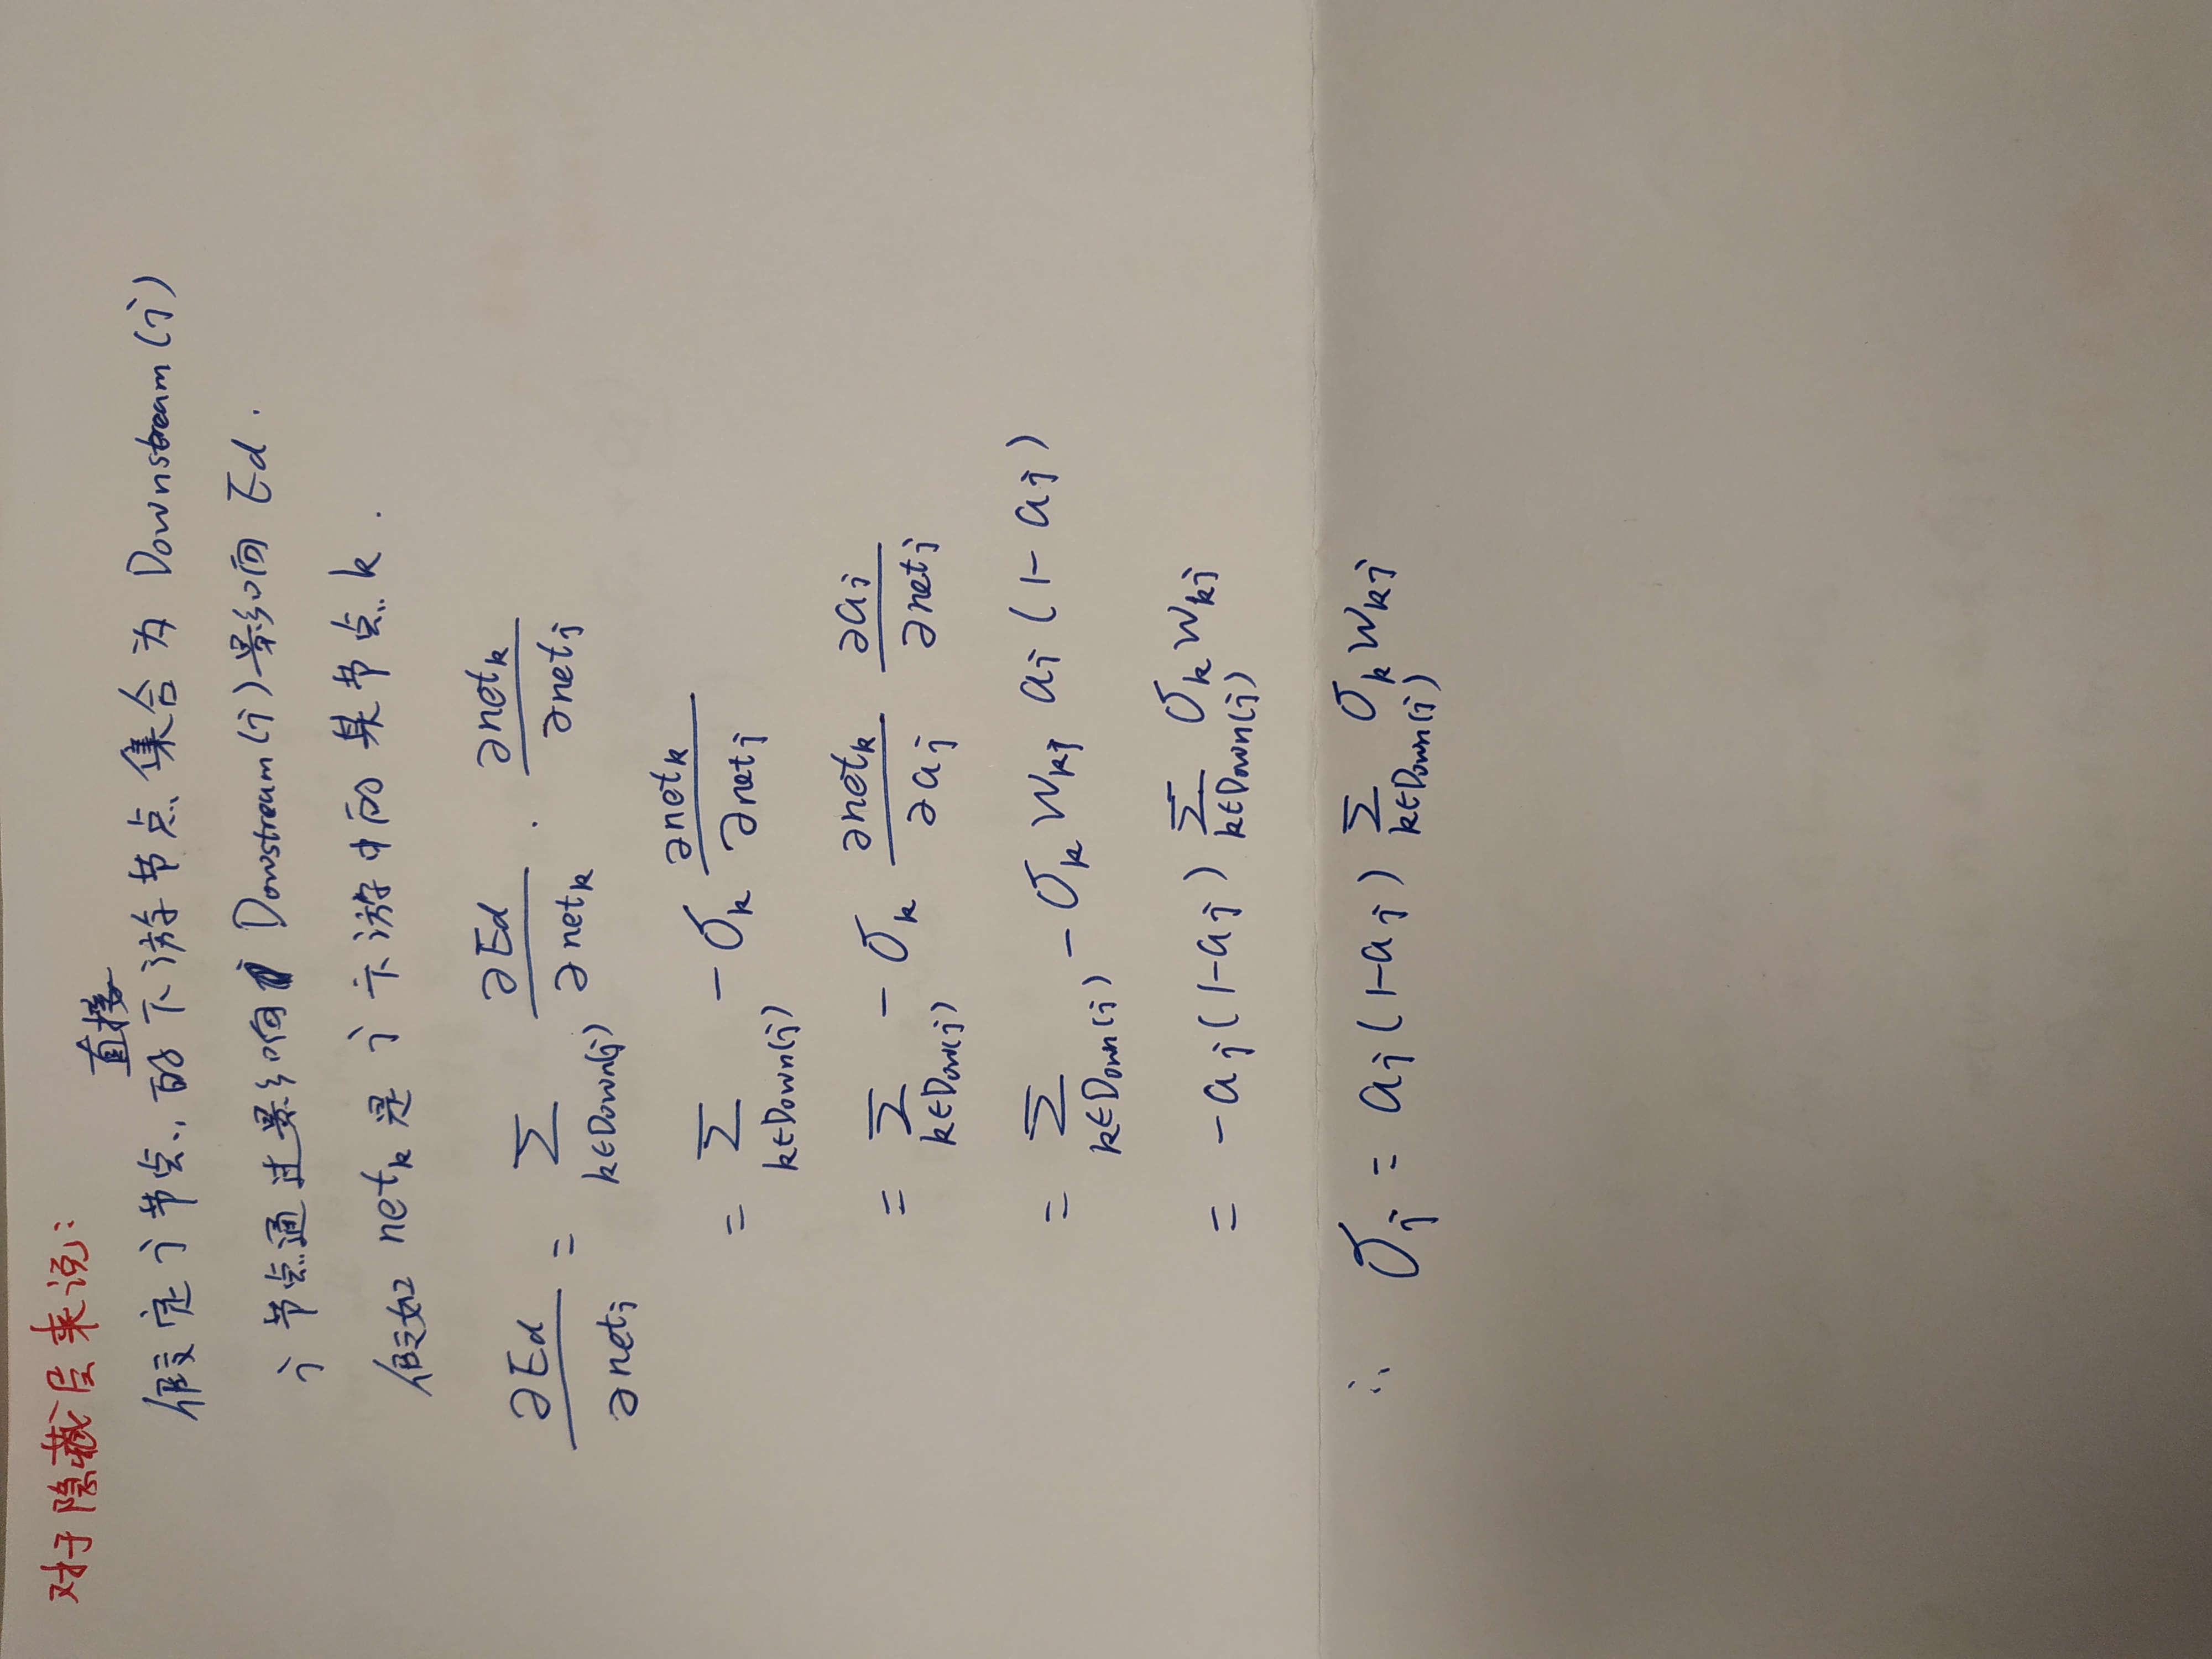 对于隐藏层来说:
直接
假定 j 节点的下游节点集合为 Downstream(j)
j 节点通过影响 Dowstream(j) 影响 Ed.
假如 netₖ 是 j 下游中的某节点 k.
∂Ed/∂netⱼ = Σ_{k∈Down(j)} ∂Ed/∂netₖ · ∂netₖ/∂netⱼ
= Σ_{k∈Down(j)} -σₖ ∂netₖ/∂netⱼ
= Σ_{k∈Dow(j)} -σₖ ∂netₖ/∂aⱼ ∂aⱼ/∂netⱼ
= Σ_{k∈Down(j)} -σₖ w_{kj} aⱼ(1-aⱼ)
= -aⱼ(1-aⱼ) Σ_{k∈Down(j)} σₖ w_{kj}
∴ σⱼ = aⱼ(1-aⱼ) Σ_{k∈Down(j)} σₖ w_{kj}